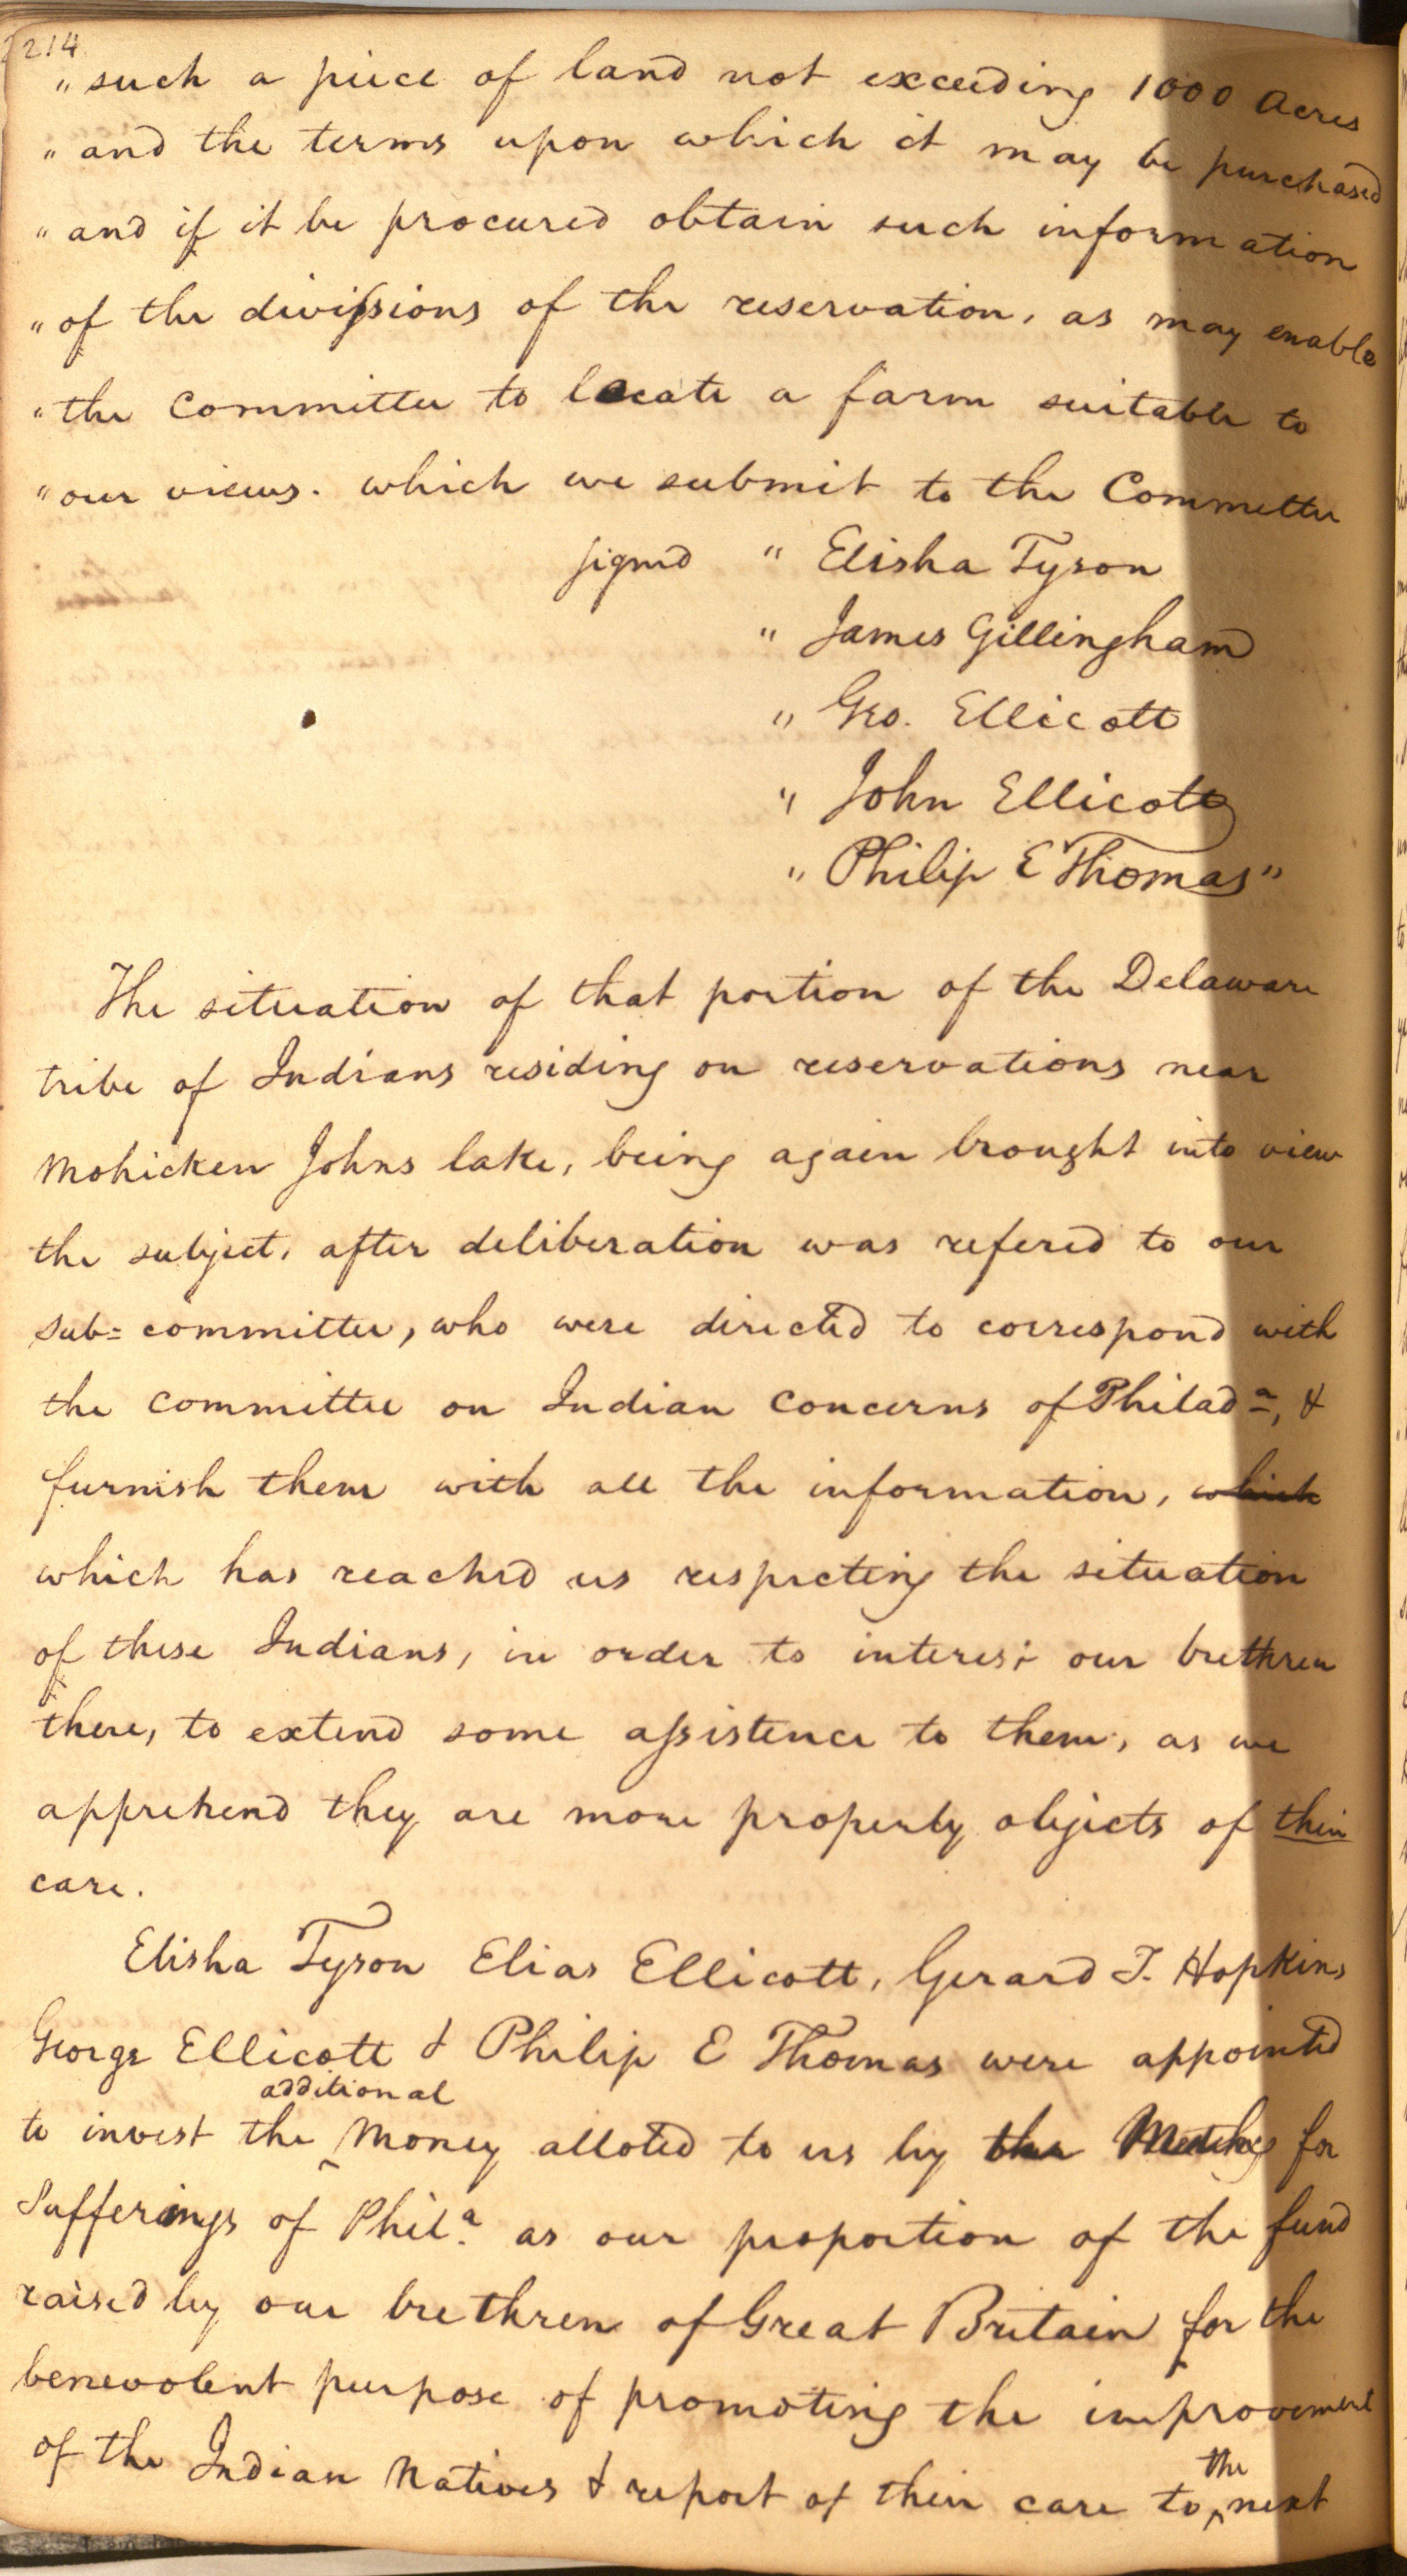 214
" such a piece of land not exceeding 1000 Acres
" and the terms upon which it may be purchased
" and if it be procured obtain such information
" of the divissions of the reservation, as may enable
" the Committee to locate a farm suitable to
" our views. which we submit to the Committee
signed " Elisha Tyson
" James Gillingham
" Geo. Ellicott
" John Ellicott
" Philip E Thomas"
The situation of that portion of the Delaware
tribe of Indians residing on reservations near
Mohicken Johns lake, being again brought into view
the subject, after deliberation was refered to our
sub=committee, who were directed to correspond with
the committee on Indian Concerns of Philada, &
furnish them with all the information, which
which has reached us respecting the situation
of these Indians, in order to interest our brethren
there, to extend some assistence to them, as we
apprehend they are more properly objects of their
care.
Elisha Tyson Elias Ellicott, Gerard T. Hopkins
George Ellicott & Philip E Thomas were appointed
additional
to invest the ^ Money alloted to us by the Meeting for
Sufferings of Phila. as our proportion of the fund
raised by our brethren of Great Britain for the
benevolent purpose of promoting the improvement
of the Indian Natives & report of their care to ^ the next